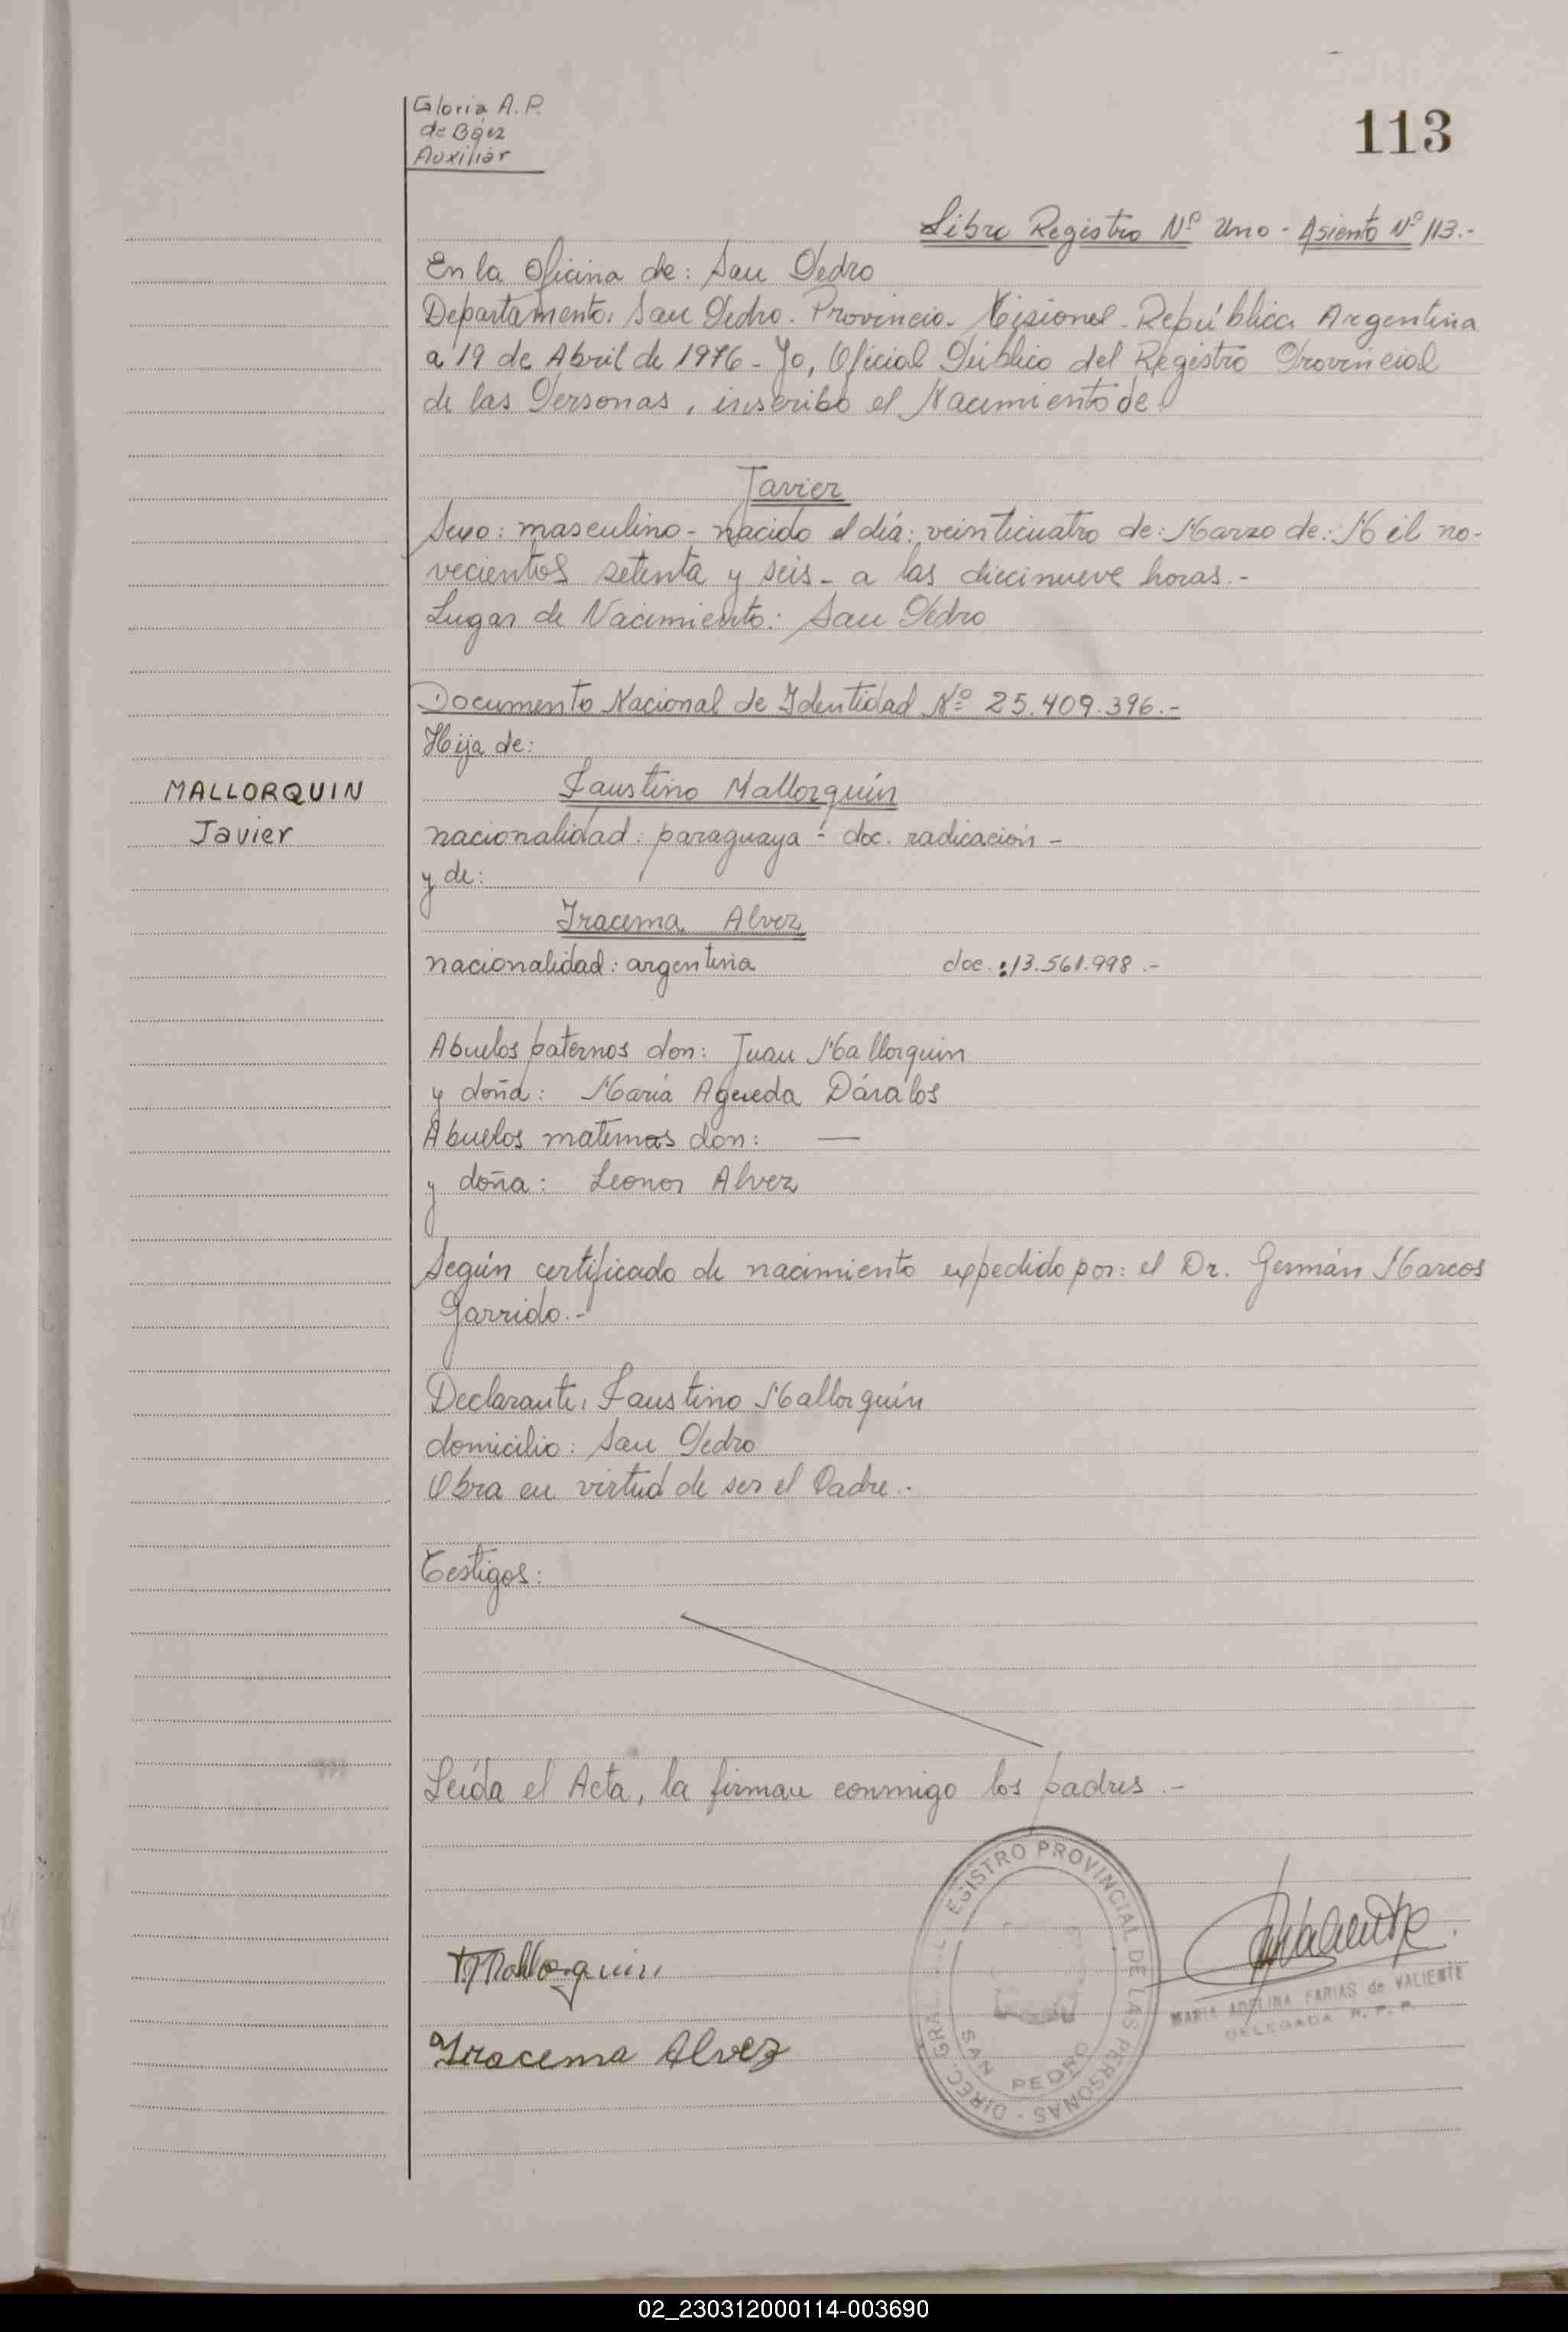 Gloria A. P.
de Báez
Auxiliar
113
Libro Registro Nº Uno - Asiento Nº 113.-
En la Oficina de: San Pedro
Departamento: San Pedro. Provincia- Misiones - República Argentina
a 19 de Abril de 1976 - Yo, Oficial Público del Registro Provincial
de las Personas, inscribo el Nacimiento de
Javier
Sexo: masculino - nacido el día: veinticuatro de: Marzo de: Mil no-
vecientos setenta y seis - a las diecinueve horas.-
Lugar de Nacimiento: San Pedro
Documento Nacional de Identidad Nº 25.409.396.-
Hija de:
MALLORQUIN
Javier
Faustino Mallorquín
nacionalidad: paraguaya - doc. radicación -
y de:
Iracema Alvez
nacionalidad: argentina doc.: 13.561.998.-
Abuelos paternos don: Juan Mallorquin
y doña: María Agueda Dávalos
Abuelos maternos don: —
y doña: Leonor Alvez
Según certificado de nacimiento expedido por: el Dr. Germán Marcos
Garrido.-
Declarante: Faustino Mallorquín
domicilio: San Pedro
Obra en virtud de ser el Padre.-
Testigos:
Leída el Acta, la firman conmigo los padres.-
DIREC. GRAL. DEL REGISTRO PROVINCIAL DE LAS PERSONAS -
SAN PEDRO
Mallorquin
Valiente
MARIA ADELINA FARIAS de VALIENTE
DELEGADA R. P. P.
Iracema Alvez
02_230312000114-003690